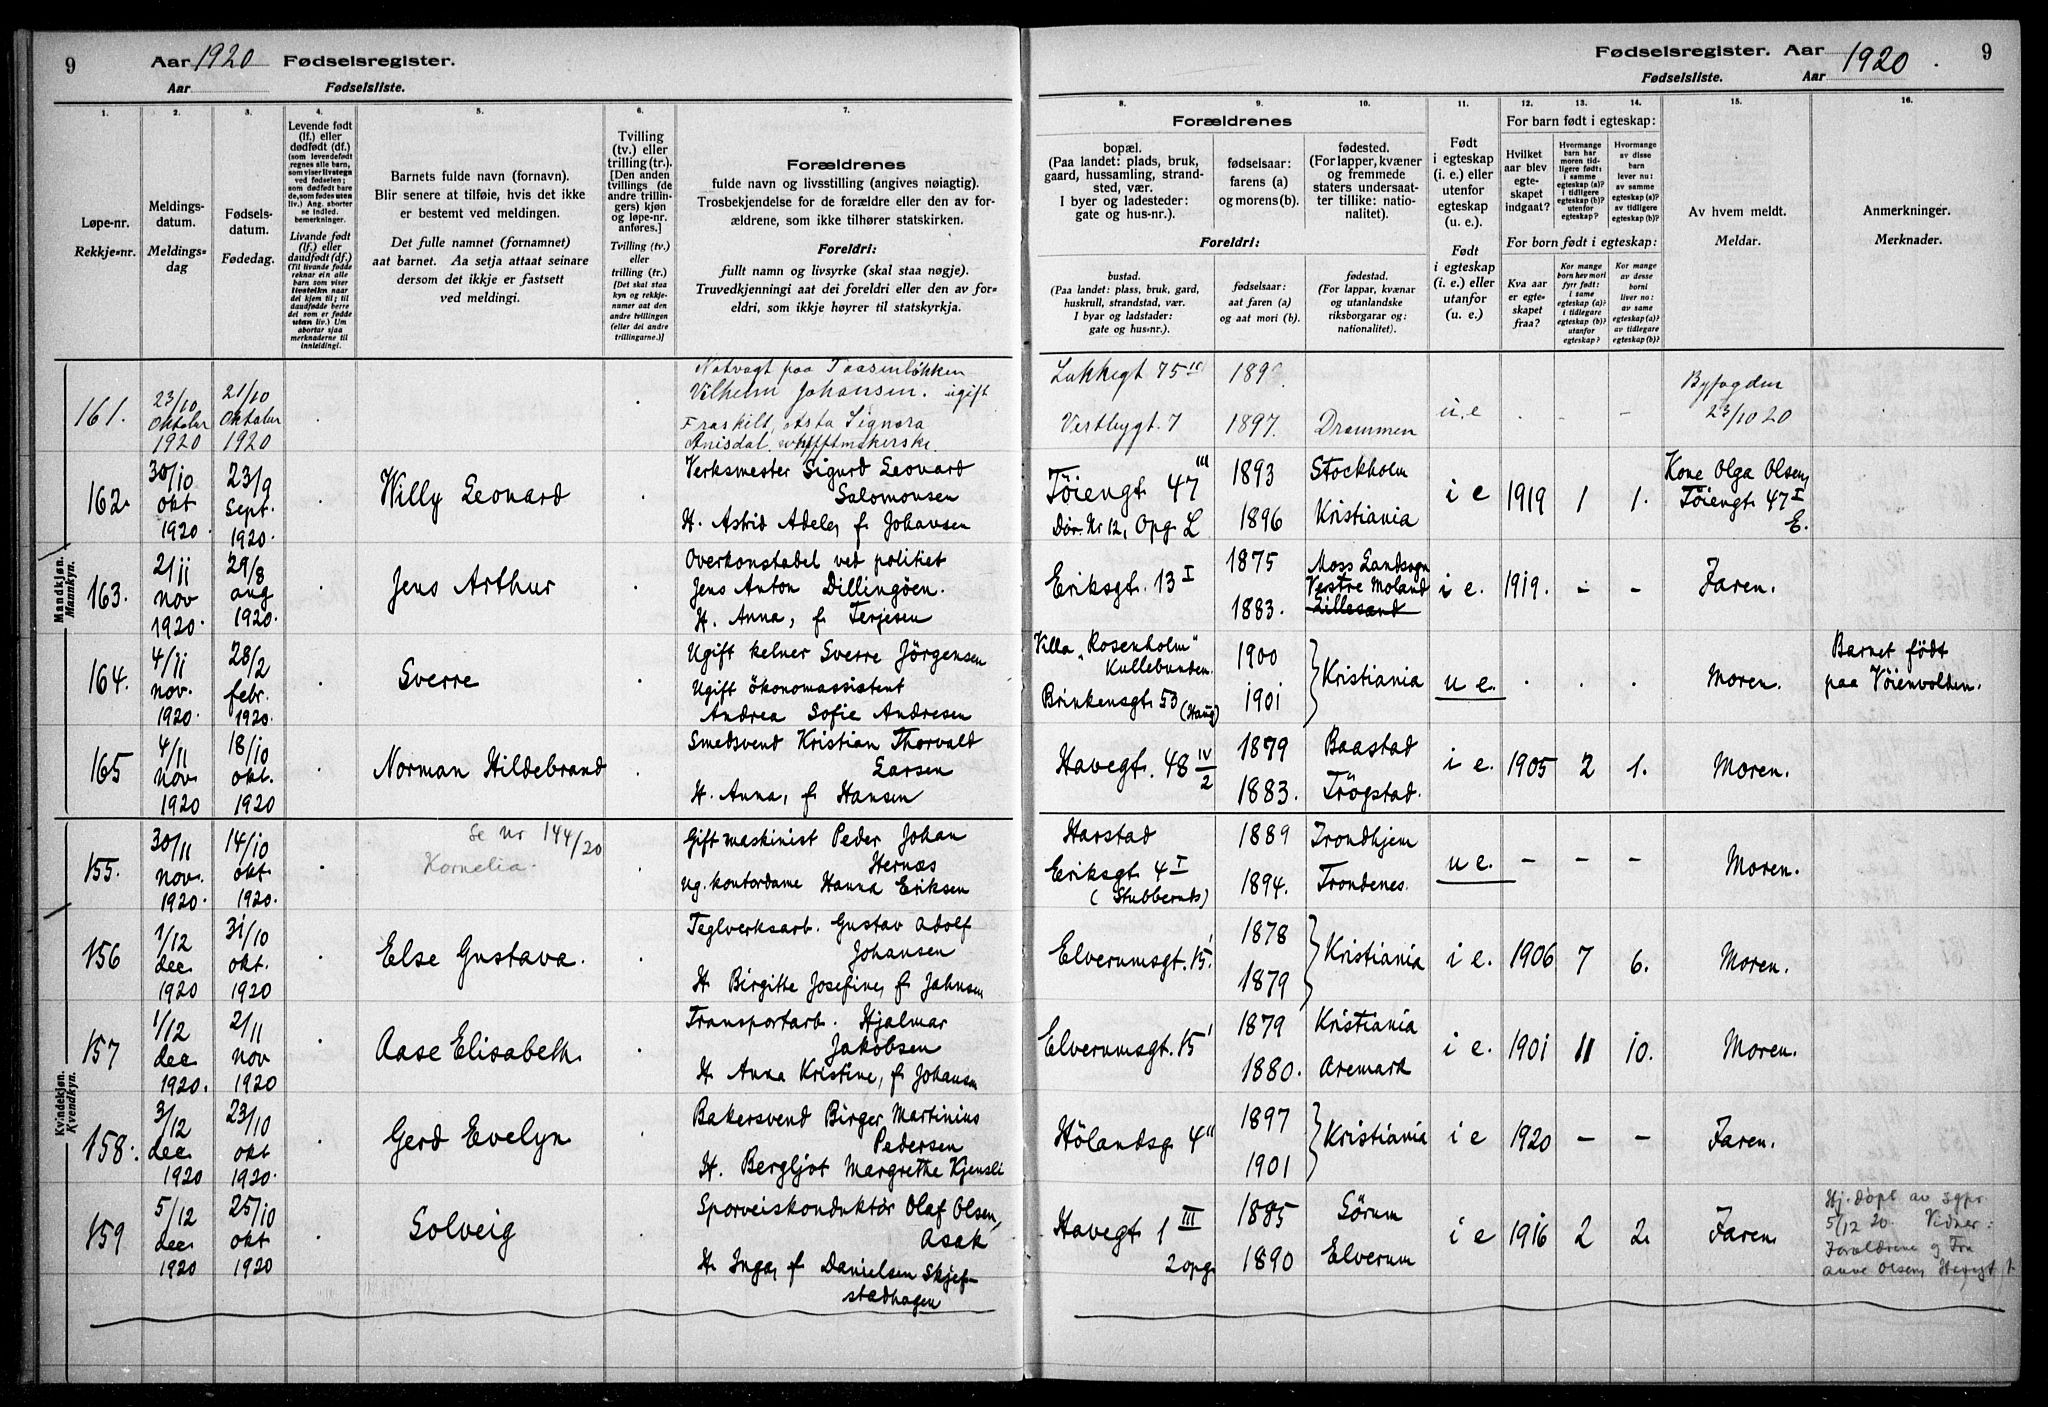 9 Aar 1920 Fødselsregister.
Aar Fødselsliste.
Fødselsregister. Aar 1920. 9
Fødselsliste. Aar
1. 2. 3. 4. 5. 6. 7. 8. 9. 10. 11. 12. 13. 14. 15. 16.
Løpe-nr.
Rekkje-nr.
Meldings-
datum.
Meldings-
dag
Fødsels-
datum.
Fødedag.
Levende født
(lf.) eller
dødfødt (df.)
(som levendefødt
regnes alle barn,
som viser livstegn
ved fødselen;
som dødfødt bare
de, som fødes uten
liv.) Ang. aborter
se indled.
bemerkninger.
Livande født
(lf.) eller
daudfødt (df.)
(Til livande fødde
reknar ein alle
barn som viser
livsteikn naar
dei kjem til; til
daudfødde berre
dei som er fødde
utan liv.) Um
abortar sjaa
merknaderne til
innleiding!
Barnets fulde navn (fornavn).
Blir senere at tilføie, hvis det ikke
er bestemt ved meldingen.
Det fulle namnet (fornamnet)
aat barnet. Aa setja attaat seinare
dersom det ikkje er fastsett
ved meldingi.
Tvilling
(tv.) eller
trilling (tr.).
[Den anden
tvillings (de
andre trillin-
gers) kjøn
og løpe-nr.
anføres.]
Tvilling (tv.)
eller
trilling (tr.)
[Det skal staa
kyn og rekkje-
numer aat den
andre tvillingen
(eller dei andre
trillingarne.)]
Forældrenes
fulde navn og livsstilling (angives nøiagtig).
Trosbekjendelse for de forældre eller den av for-
ældrene, som ikke tilhører statskirken.
Foreldri:
fullt namn og livsyrke (skal staa nøgje).
Truvedkjenningi aat dei foreldri eller den av for-
eldri, som ikkje høyrer til statskyrkja.
Forældrenes
bopæl.
(Paa landet: plads, bruk,
gaard, hussamling, strand-
sted, vær.
I byer og ladesteder:
gate og hus-nr.).
fødselsaar:
farens (a)
og morens (b).
fødested.
(For lapper, kvæner
og fremmede
staters undersaat-
ter tillike: natio-
nalitet).
Foreldri:
bustad.
(Paa landet: plass, bruk, gard,
huskrull, strandstad, vær.
I byar og ladstader:
gate og hus-nr.).
fødselsaar:
aat faren (a)
og aat mori (b).
fødestad.
(For lappar, kvænar
og utanlandske
riksborgarar og:
nationalitet).
Født
i egteskap
(i. e.) eller
utenfor
egteskap
(u. e.).
Født
i egteskap
(i. e.) eller
utanfor
(u. e.)
For barn født i egteskap:
Hvilket
aar blev
egte-
skapet
indgaat?
Hvormange
barn har
moren tid-
ligere født:
i samme
egteskap (a)?
i tidligere
egteskap (b)?
utenfor
egteskap?
Hvormange
av disse
barn
lever nu:
av samme
egteskap (a)?
av tidligere
egteskap (b)?
For born født i egteskap:
Kva aar
er egte-
skapet
fraa?
Kor mange
born hev mori
fyrr født:
i same
egteskap (a)?
i tidlegare
egteskap (b)?
utanfor
egteskap?
Kor mange
av desse
borni
liver no:
av same
egteskap (a)?
av tidlegare
egteskap (b)?
Av hvem meldt.
Meldar.
Anmerkninger.
Merknader.
Mandkjøn.
Mannkyn.
161. 23/10 Oktober 1920 21/10 Oktober 1920
Natvagt paa Taasenløkken
Vilhelm Johansen. ugift
Fraskilt, Asta Signora
Vestbygt. 7 1897. Drammen u,e
Byfogden
23/10 20
162. 30/10 okt 1920 23/9 Sept. 1920. Willy Leonard
Verksmester Sigurd Leonard
Salomonsen
H. Astrid Adele, f. Johansen
Töiengt. 47 III
Dör. Nr 12, Opg L
1893 Stockholm
1896 Kristiania
i e 1919 1 1.
Kone Olga Olsen,
Töiengt 47 I
E.
163. 2/11 nov 1920. 29/8 aug 1920. Jens Arthur
Overkonstabel ved politiet
Jens Anton Dillingöen.
H. Anna, f. Terjesen
Eriksgt. 13 I
1875 Moss Landsogn
1883. Vestre Moland
Lillesand
i e. 1919. - - Faren.
164. 4/11 nov. 1920. 28/2 febr. 1920. Sverre
Ugift kelner Sverre Jörgensen
Ugift ökonomassistent
Andrea Sofie Andresen
Villa „Rosenholm"
Kullebunden.
Brinkensgt. 53 (Haug)
1900
1901
Kristiania u e. Moren.
Barnet født
paa Vöienvolden.
165 4/11 nov. 1920 18/10 okt. 1920 Norman Hildebrand
Smedsvend Kristian Thorvald
Larsen
H. Anna, f. Hansen
Havegt. 48 IV/2
1879 Baastad
1883. Trögstad.
i e. 1905 2 1. Moren.
Kvindekjøn.
Kvendkyn.
155. 30/11 nov. 1920. 14/10 okt 1920.
Se nr 144/20
Kornelia.
Gift maskinist Peder Johan
Hernæs
Ug. kontordame Hanna Eriksen
Harstad
Eriksgt 4 I
1889 Trondhjem
1894. Trondenes.
u e. - - - Moren.
156 1/12 dec. 1920 31/10 okt. 1920 Else Gustava.
Teglverksarb. Gustav Adolf
Johansen
H. Birgitte Josefine, f. Johnsen
Elverumsgt. 15 I
1878
1879
Kristiania i e. 1906 7 6. Moren.
157 1/12 dec 1920. 2/11 nov 1920 Aase Elisabeth
Transportarb. Hjalmar
Jakobsen
H. Anna Kristine, f. Johansen
Elverumsgt. 15 I
1879 Kristiania
1880. Aremark
i e. 1901 11 10. Moren.
158. 3/12 dec. 1920 23/10 okt 1920. Gerd Evelyn
Bakersvend Birger Martinius
Pedersen
H. Bergljot Margrethe Kjensli
Hölandsg 4 II
1897
1901
Kristiania i e 1920 - - Faren.
159 5/12 dec 1920 25/10 okt 1920 Solveig
Sporveiskonduktör Olaf Olsen,
Asak
H. Inga, f. Danielsen Skjef-
stadhagen
Havegt 1 III
2 opg.
1885 Sörum
1890 Elverum
i e 1916 2 2. Faren.
Hj. döpt av sgpr.
5/12 20. Vidner:
Forældrene og Fru